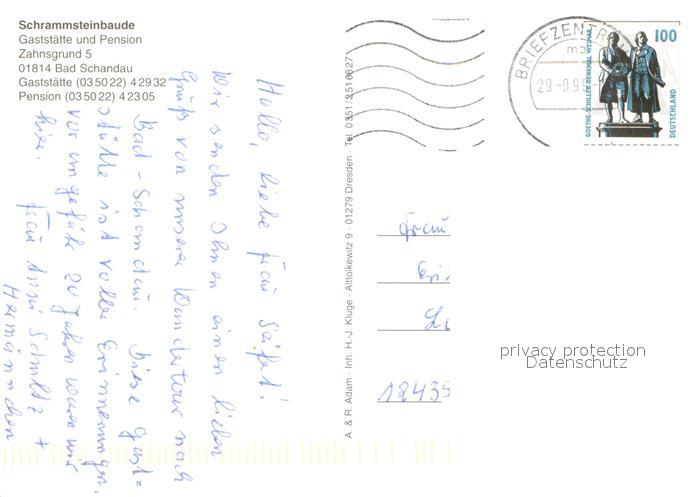 Schrammsteinbaude
Gaststätte und Pension
Zahnsgrund 5
01814 Bad Schandau
Gaststätte (035022) 42932
Pension (035022) 42305
Hallo, liebe Frau Seifert!
Wir senden Ihnen einen lieben
Gruß von unserer Wandertour nach
Bad-Schandau. Diese Gast-
stätte ist voller Erinnerungen.
vor ungefähr 20 Jahren waren wir
hier. Frau Anni Schultz +
Hermännchen
A. & R. Adam · Inh. H.-J. Kluge · Alttolkewitz 9 · 01279 Dresden · Tel. 0351/2516627
BRIEFZENTR
29.-9.9
100
GOETHE-SCHILLER-DENKMAL WEIMAR
DEUTSCHLAND
Frau
12435
privacy protection
Datenschutz